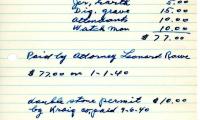 Jer. Earth 5.00
Dig. grave 15.00
Attendants 10.00
Watch Man 10.00
$ 77.00
Paid by Attorney Leonard Rowe
$ 77.00 on 1-1-40
double stone permit $10.00
by Kraig on paid 9-6-40